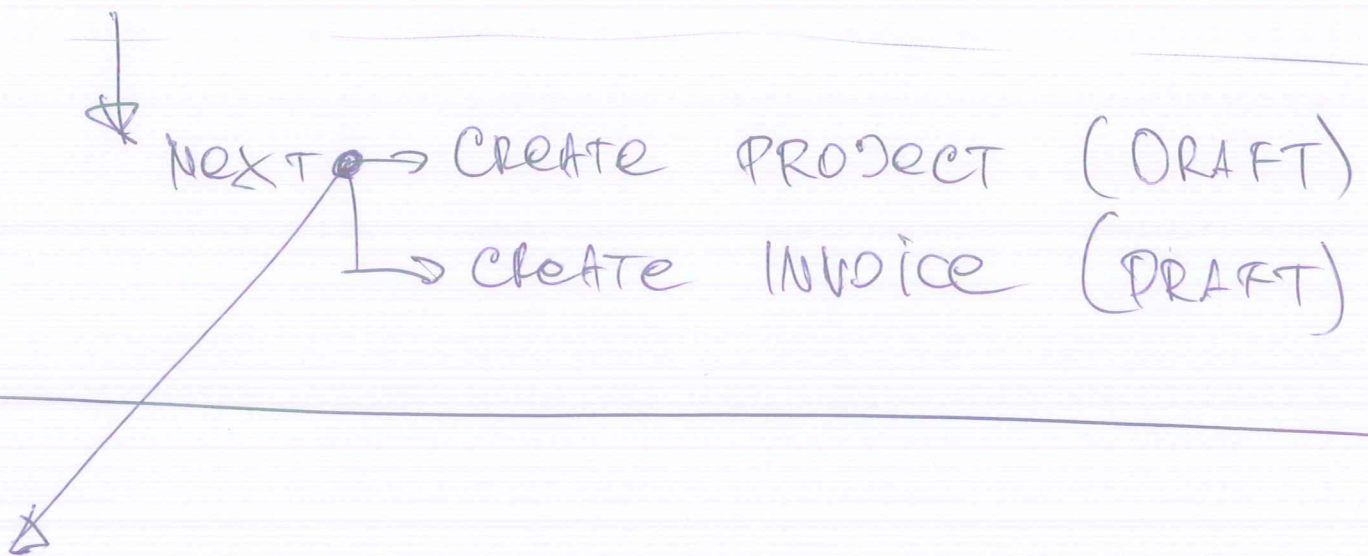 NEXT → CREATE PROJECT (DRAFT)
→ CREATE INVOICE (DRAFT)